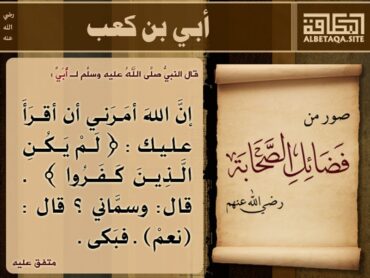 البطاقة
ALBETAQA.SITE
أبي بن كعب
رضي
الله
عنه
قال النبيُّ صلَّى اللَّهُ عليه وسلَّم لــ أُبَيٍّ :
إنَّ اللهَ أمَرَني أن أقرَأَ
عليك : ﴿ لَمْ يَكُنِ
الَّذِينَ كَفَرُوا ﴾ .
قال: وسمَّاني ؟ قال :
(نعمْ) . فبَكى .
متفق عليه
صور من
فضائل الصحابة
رضي الله عنهم